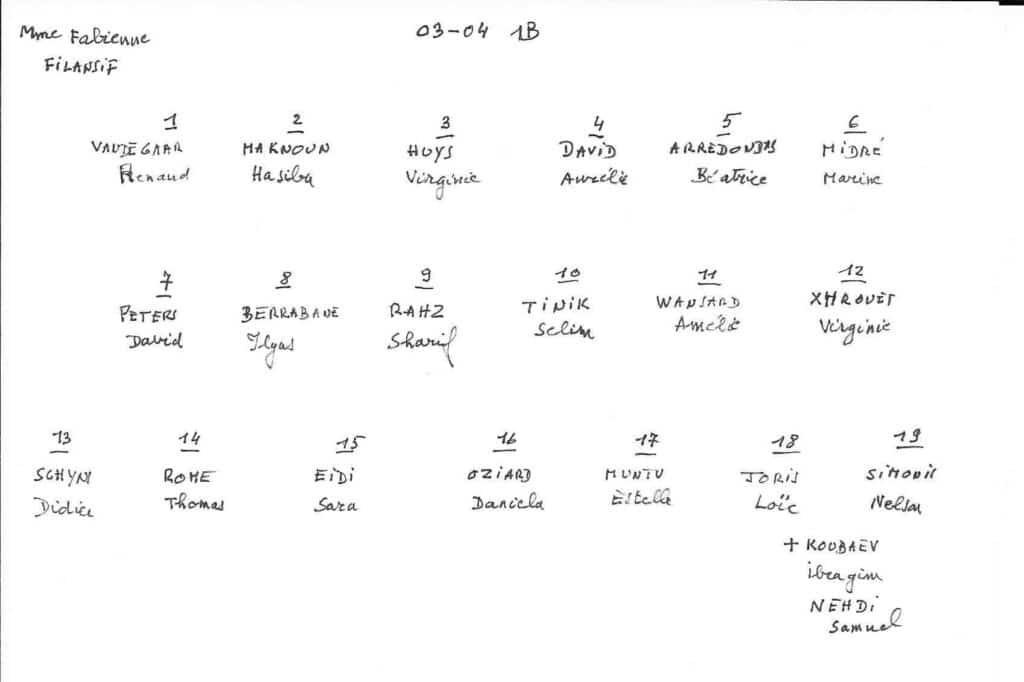 Mme Fabienne
FILANSIF
03-04 1B
1 2 3 4 5 6
MAKNOUN HUYS DAVID MIDRÉ
Renaud Hasiba Virginie Aurélie Béatrice Marine
7 8 9 10 11 12
PETERS BERRABANE RAHZ TINIK WANSARD XHROUET
David Ilyas Sharif Selim Amélie Virginie
13 14 15 16 17 18 19
SCHYNS ROME EIDI OZIARD MUNTU JORIS SIMONIS
Thomas Sara Daniela Estelle Loïc Nelson
+ KOUBAEV
ibragim
NEHDI
Samuel